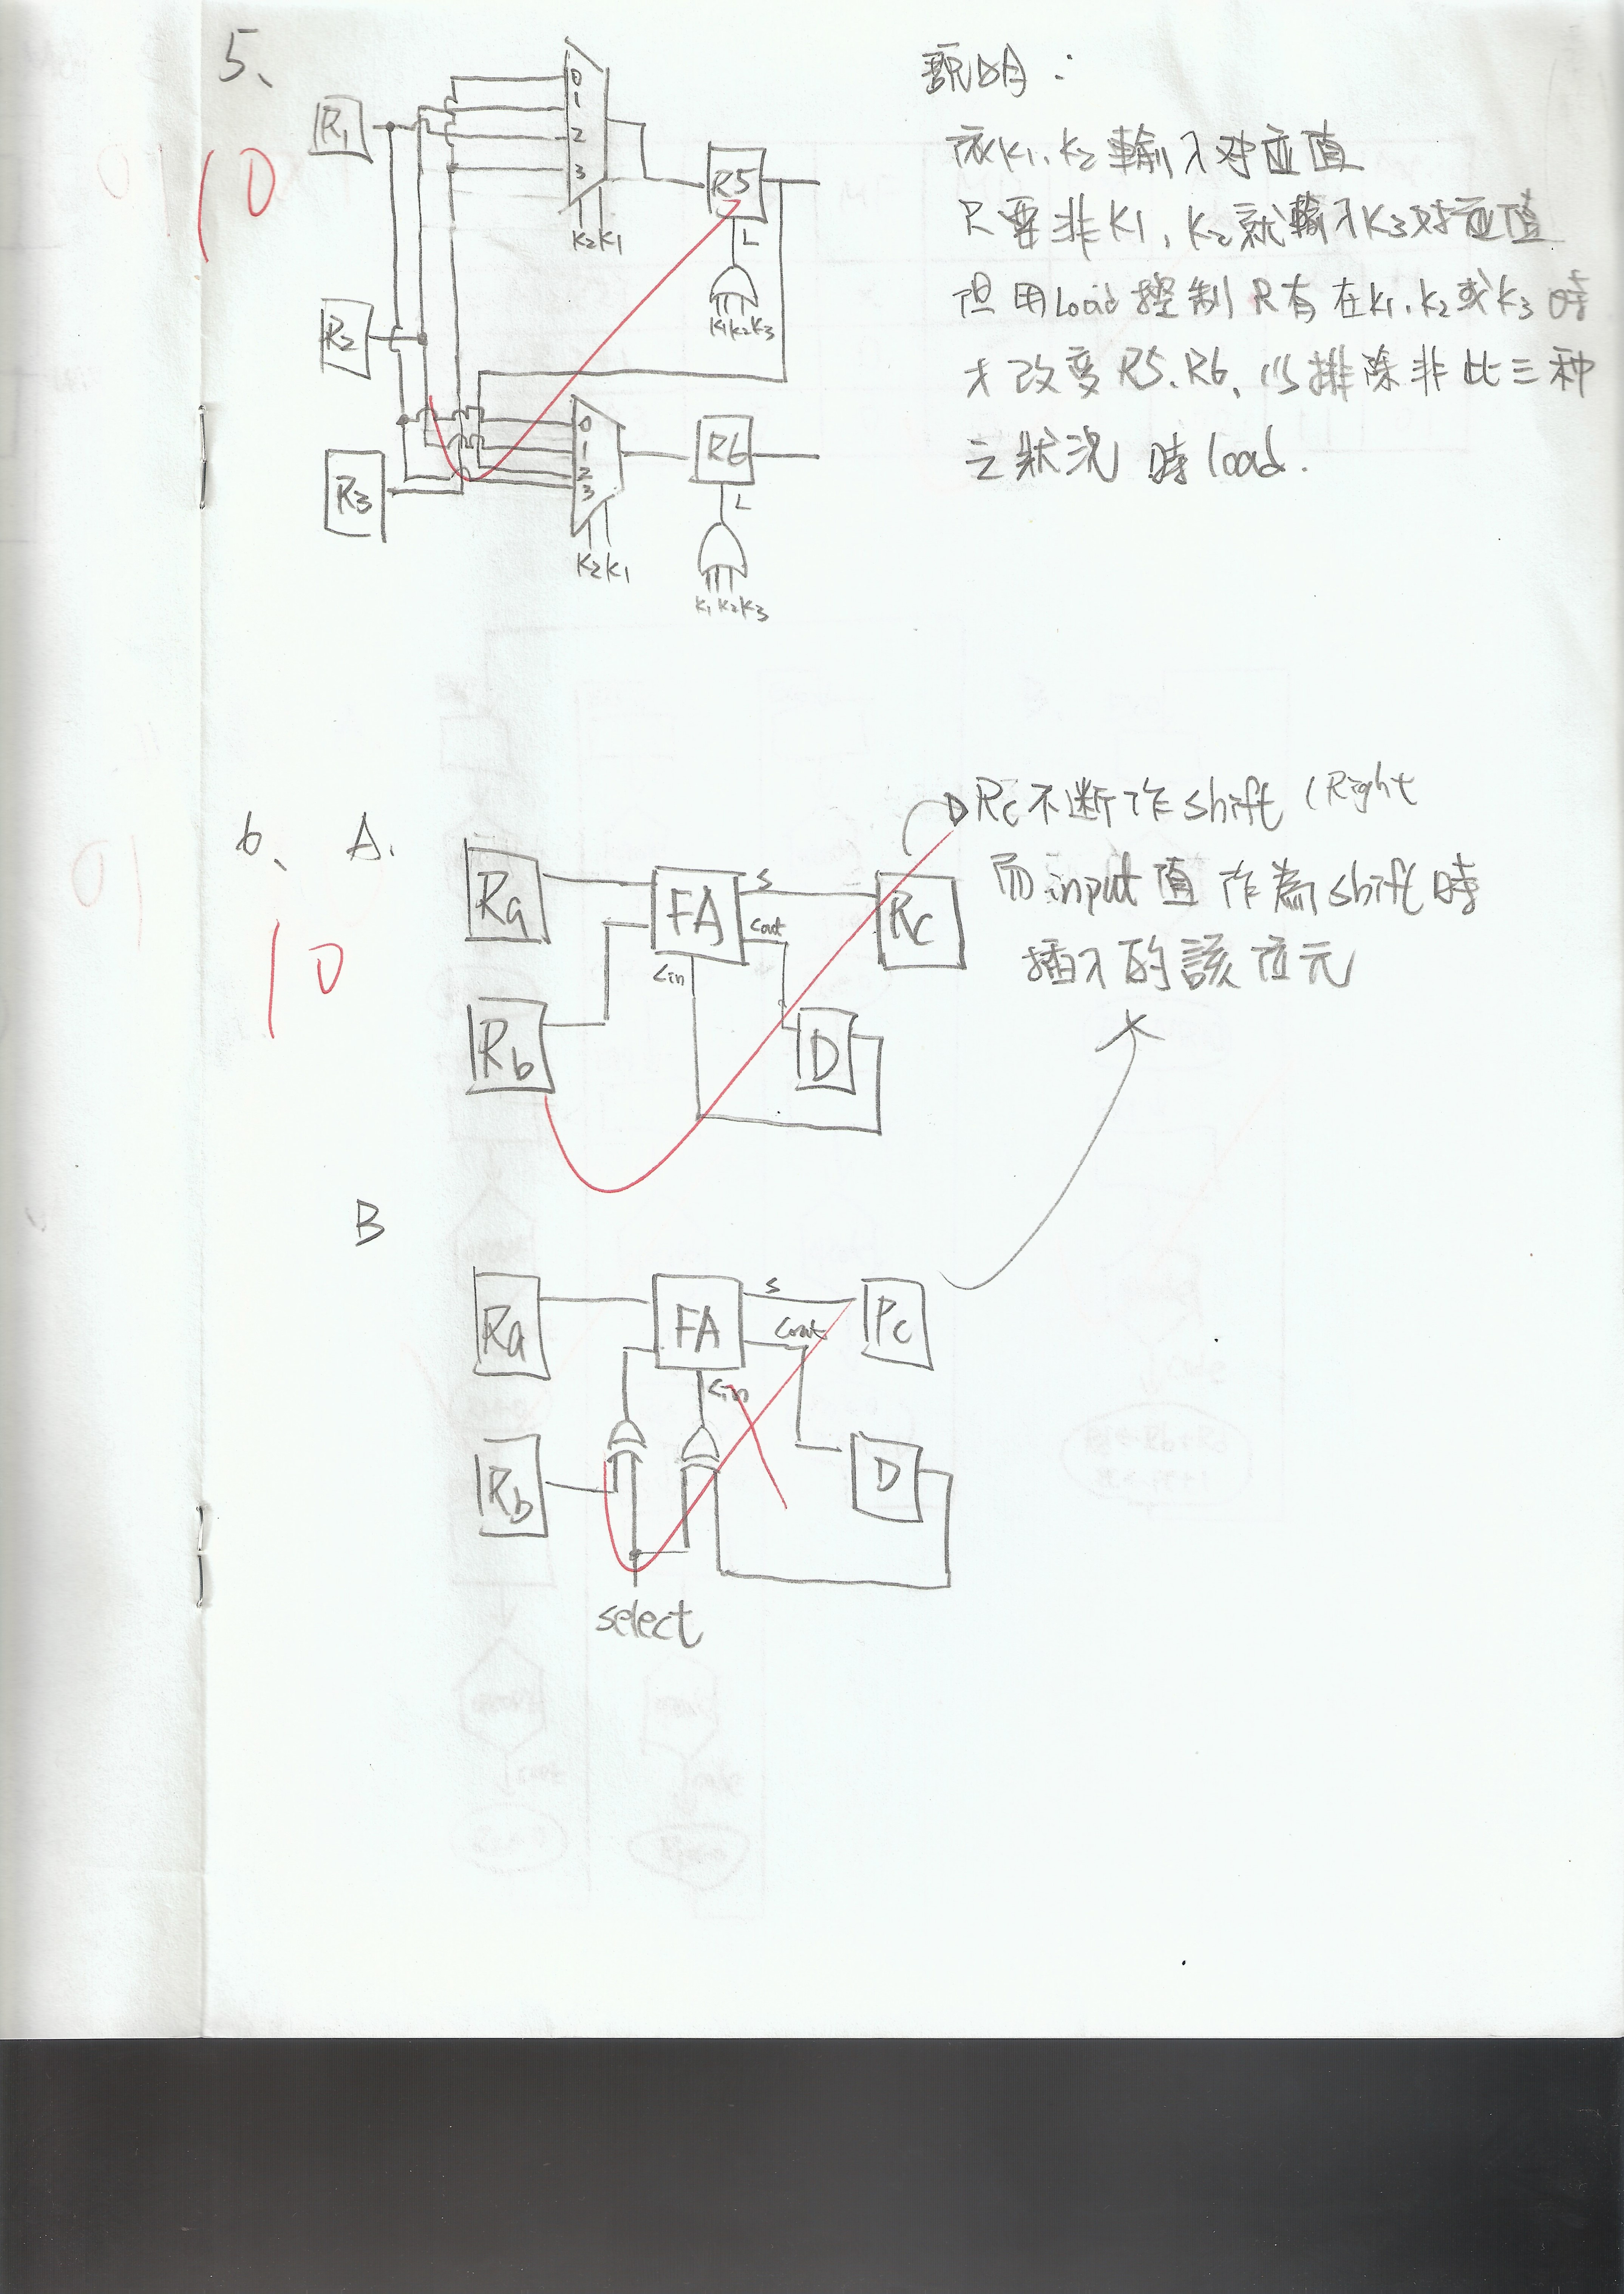 5、
10
R1
R2
R3
0
1
2
3
K2K1
R5
L
K1K2K3
0
1
2
3
K2K1
R6
L
K1K2K3
說明：
依K1、K2輸入对应值
只要非K1、K2就輸入K3对应值
但用Load控制只有在K1、K2或K3時
才改变R5、R6、以排除非此三种
之狀況時load.
6、A.
10
Ra
Rb
FA
S
Cout
Cin
Rc
D
Rc不断作shift (Right
而input值作為shift時
插入的該位元
B
Ra
Rb
FA
S
Cout
Cin
Rc
D
select